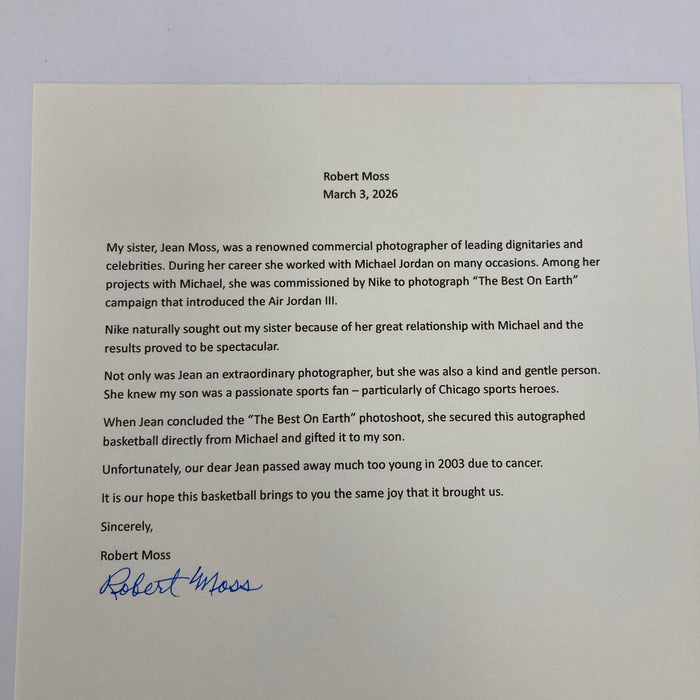 Robert Moss
March 3, 2026
My sister, Jean Moss, was a renowned commercial photographer of leading dignitaries and
celebrities. During her career she worked with Michael Jordan on many occasions. Among her
projects with Michael, she was commissioned by Nike to photograph “The Best On Earth”
campaign that introduced the Air Jordan III.
Nike naturally sought out my sister because of her great relationship with Michael and the
results proved to be spectacular.
Not only was Jean an extraordinary photographer, but she was also a kind and gentle person.
She knew my son was a passionate sports fan – particularly of Chicago sports heroes.
When Jean concluded the “The Best On Earth” photoshoot, she secured this autographed
basketball directly from Michael and gifted it to my son.
Unfortunately, our dear Jean passed away much too young in 2003 due to cancer.
It is our hope this basketball brings to you the same joy that it brought us.
Sincerely,
Robert Moss
Robert Moss